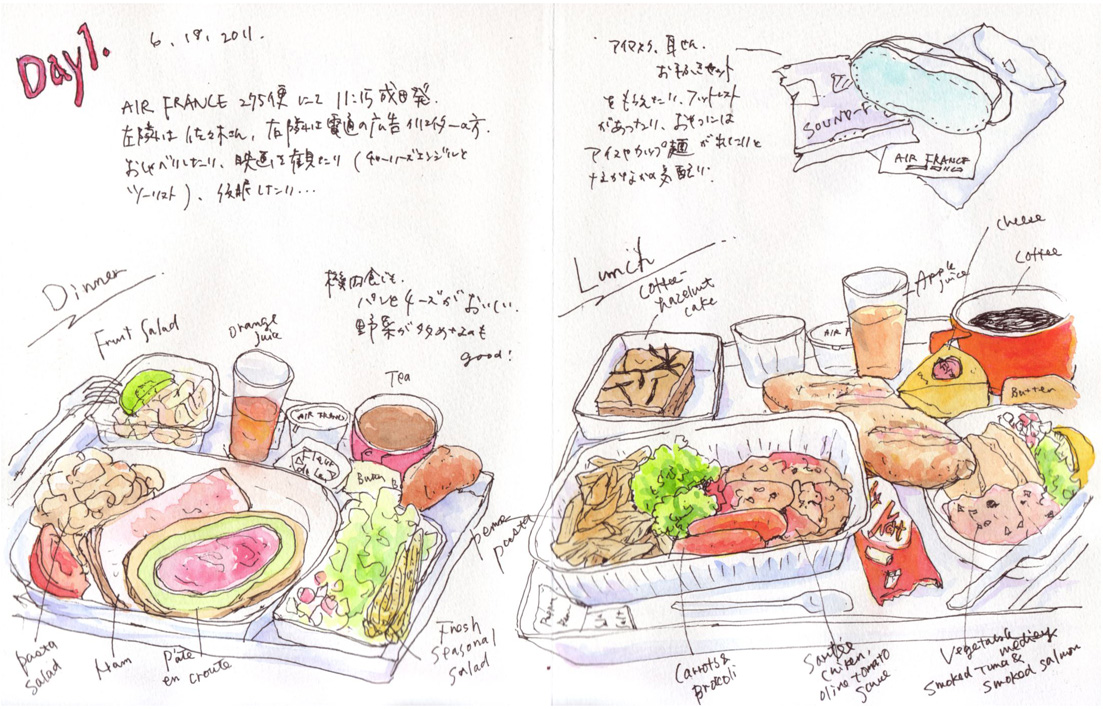 Day 1.
6. 18. 2011.
AIR FRANCE 275便 にて 11:15 成田発.
左隣は 佐々木さん, 右隣は電通の広告クリエイターの方.
おしゃべりしたり、映画を観たり (チャーリーズエンジェルと
ツーリスト)、後眠したり...
アイマスク、耳せん.
セット
をもらえたり、フットレスト
があったり、おやつには
アイスやカップ麺が出たりと
なかなかの気配り.
SOUND
AIR FRANCE
Dinner
機内食でも、
パンとチーズがおいしい.
野菜が多めなのも
good!
Fruit Salad
orange
juice
Tea
AIR FRANCE
Fleur
de Lait
Butter
pasta
salad
Ham
Pâté
en croute
Fresh
Seasonal
Salad
Lunch
coffee-
hazelnut
cake
Apple
juice
cheese
coffee
AIR F
Butter
penne
pasta
Carrots &
Brocoli
Sautée
chiken,
olive tomato
sauce
Vegetable
medley
smoked tuna &
smoked salmon